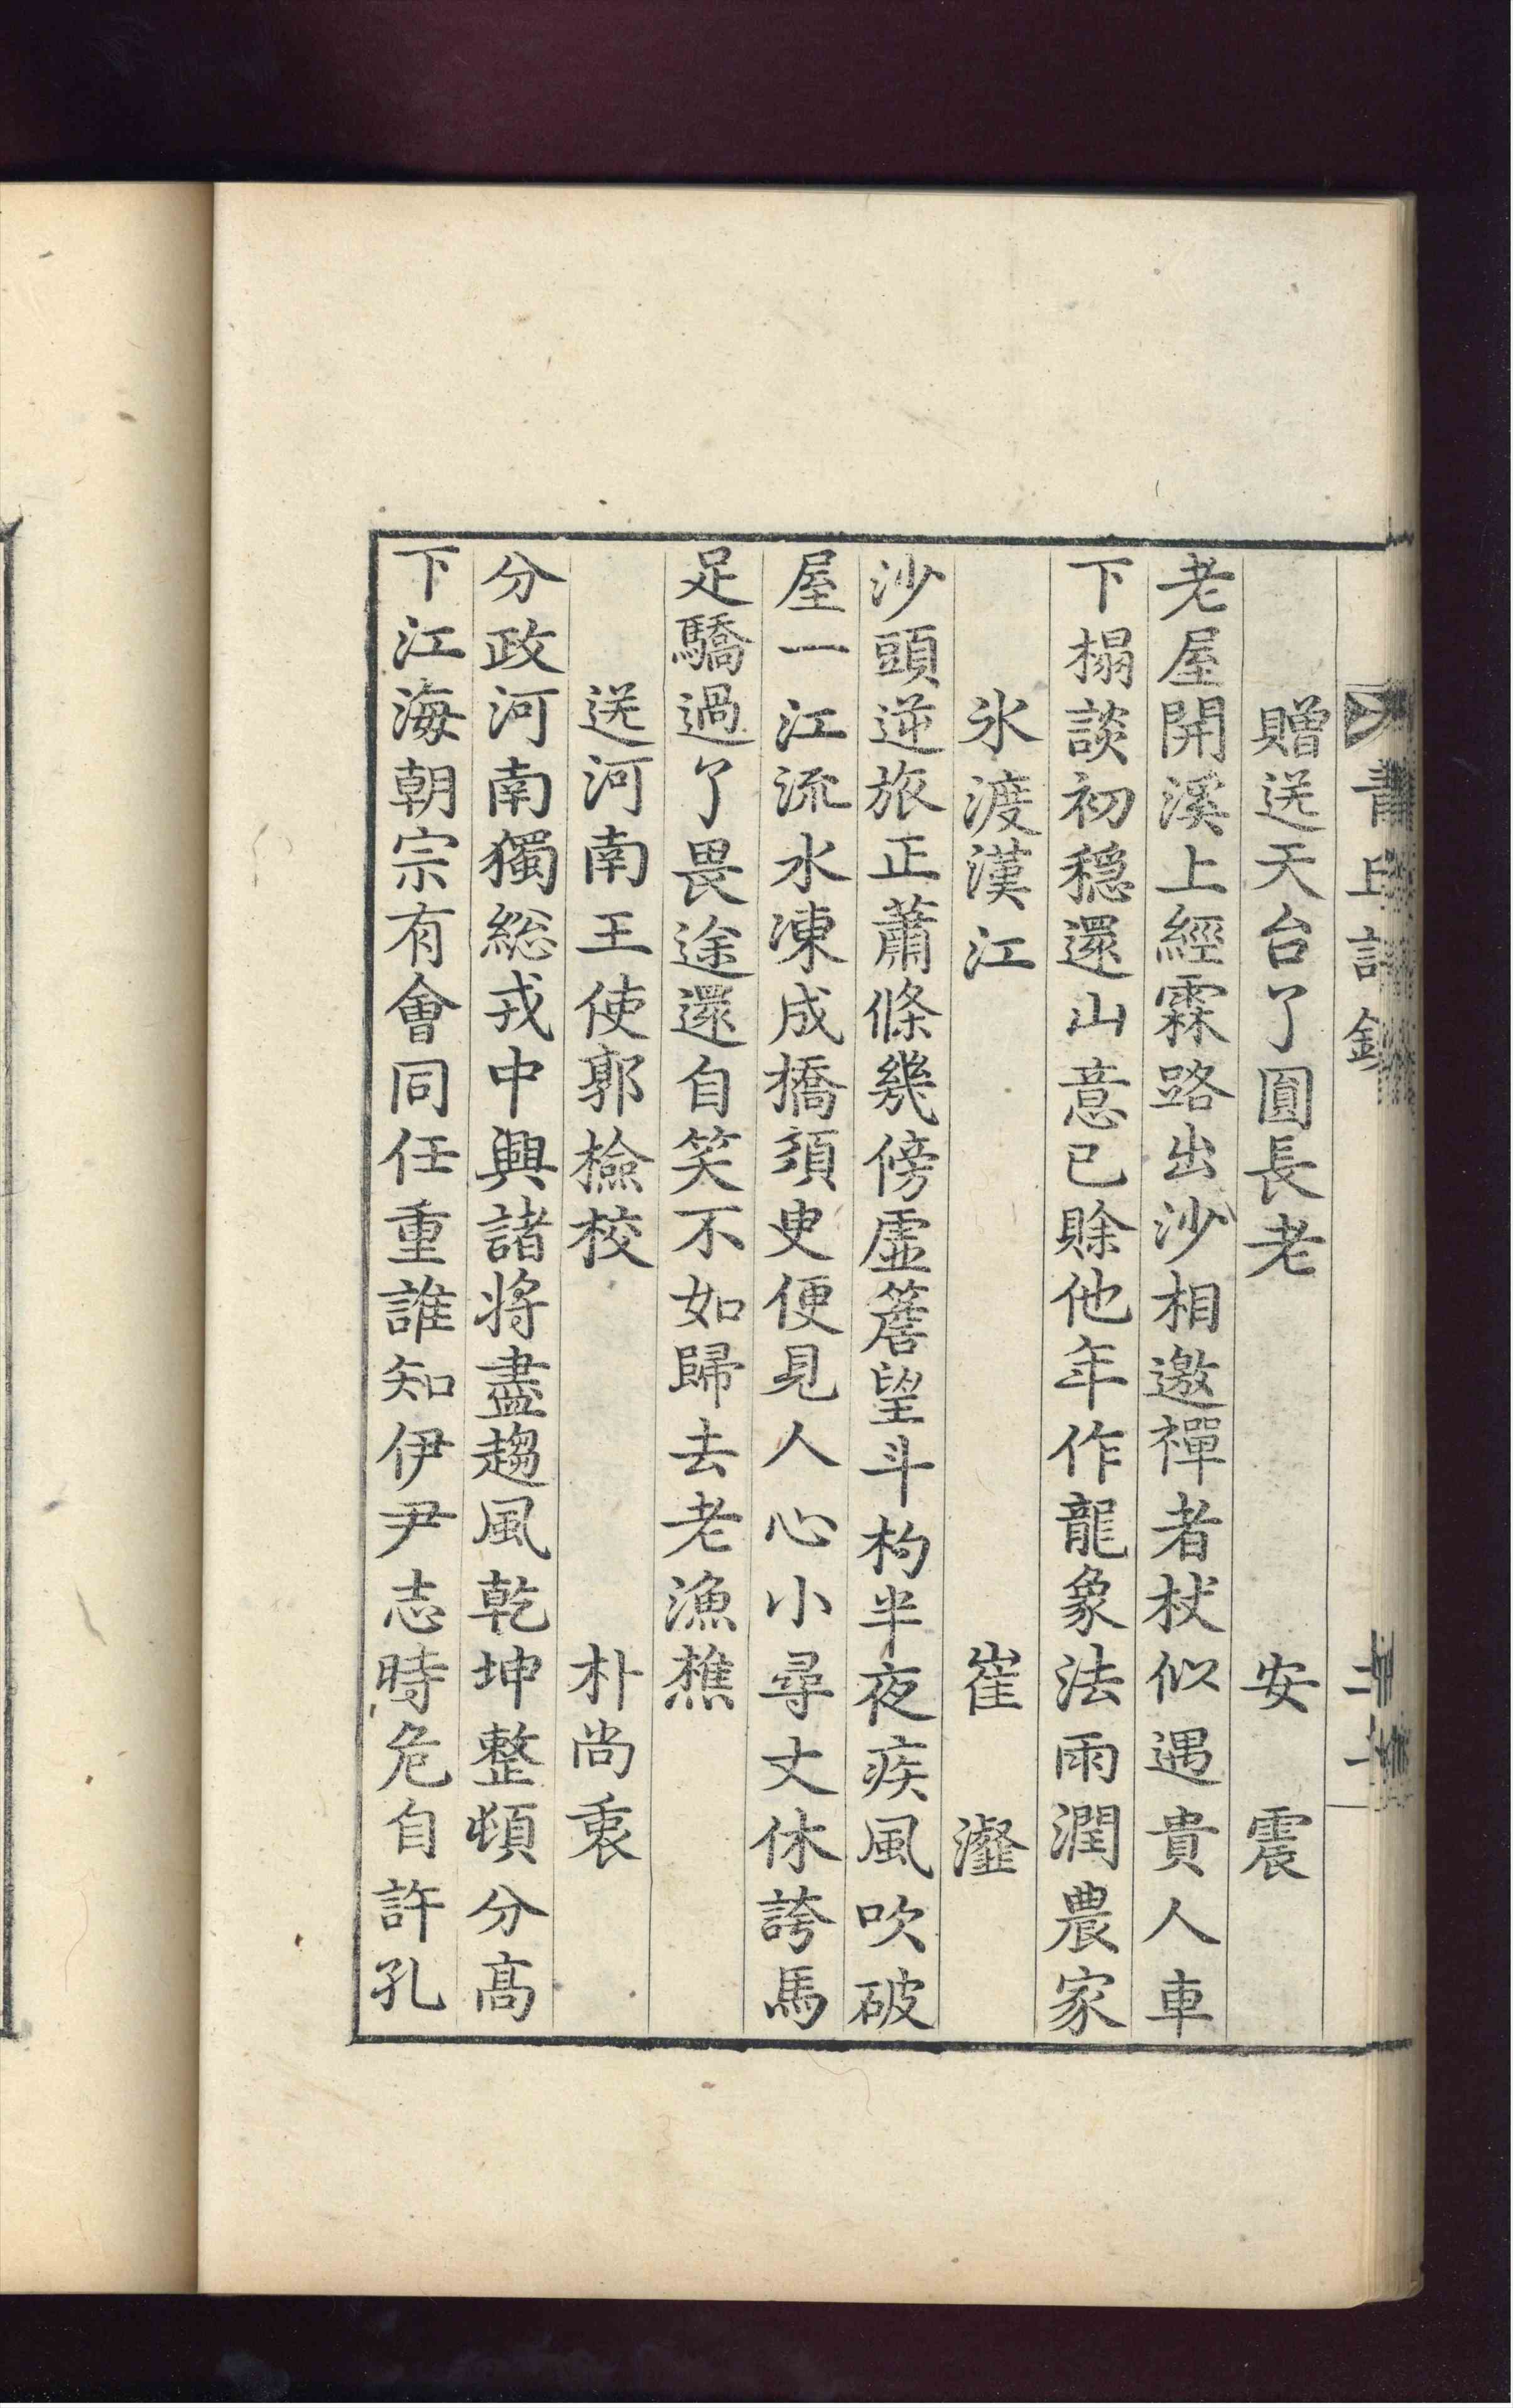 贈送天台了圓長老 安震
老屋開溪上經霖路出沙相邀禪者杖似遇貴人車
下榻談初穩還山意已賖他年作龍象法雨潤農家
氷渡漢江 崔瀣
沙頭逆旅正蕭條幾傍虛簷望斗杓半夜疾風吹破
屋一江流水凍成橋須臾便見人心小尋丈休誇馬
足驕過了畏途還自笑不如歸去老漁樵
送河南王使郭檢校 朴尙衷
分政河南獨総戎中興諸將盡趨風乾坤整頓分高
下江海朝宗有會同任重誰知伊尹志時危自許孔